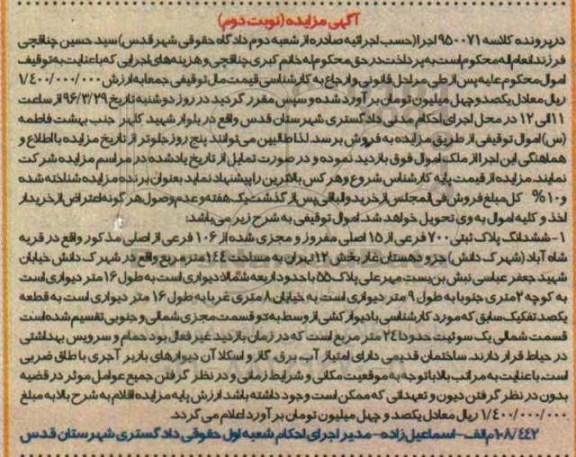 آگهی مزایده (نوبت دوم)
در پرونده کلاسه ۹۵۰۰۷۱ اجرا (حسب اجرائیه صادره از شعبه دوم دادگاه حقوقی شهر قدس) سید حسین چناقچی
فرزند انعام اله محکوم است به پرداخت در حق محکوم له خانم کبری چناقچی و هزینه های اجرایی که با عنایت به توقیف
اموال محکوم علیه پس از طی مراحل قانونی و ارجاع به کارشناسی قیمت مال توقیفی جمعا به ارزش ۱/۴۰۰/۰۰۰/۰۰۰
ریال معادل یکصد و چهل میلیون تومان برآورد شده و سپس مقرر گردید در روز دوشنبه تاریخ ۹۶/۳/۲۹ از ساعت
۱۱ الی ۱۲ در محل اجرای احکام مدنی دادگستری شهرستان قدس واقع در بلوار شهید کلهر جنب بهشت فاطمه
(س) اموال توقیفی از طریق مزایده به فروش برسد. لذا طالبین می توانند پنج روز جلوتر از تاریخ مزایده با اطلاع و
هماهنگی این اجرا از ملک اموال فوق بازدید نموده و در صورت تمایل از تاریخ یاد شده در مراسم مزایده شرکت
نمایند. مزایده از قیمت پایه کارشناس شروع و هر کس بالاترین را پیشنهاد نماید بعنوان برنده مزایده شناخته شده
و ۱۰% کل مبلغ فروش فی المجلس از خریدار و الباقی پس از گذشت یک هفته و عدم وصول هر گونه اعتراض از خریدار
اخذ و کلیه اموال به وی تحویل خواهد شد. اموال توقیفی به شرح زیر می باشد:
۱- ششدانگ پلاک ثبتی ۷۰۰ فرعی از ۱۵ اصلی مفروز و مجزی شده از ۱۰۶ فرعی از اصلی مذکور واقع در قریه
شاه آباد (شهرک دانش) جزو دهستان غار بخش ۱۲ تهران به مساحت ۱۴۴ متر مربع واقع در شهرک دانش خیابان
شهید جعفر عباسی نبش بن بست مهر علی پلاک ۵۵ با حدود اربعه شمالا دیواری است به طول ۱۶ متر دیواری است
به کوچه ۲ متری جنوبا به طول ۹ متر دیواری است به خیابان ۸ متری غربا به طول ۱۶ متر دیواری است به قطعه
یکصد تفکیک سابق که مورد کارشناسی با دیوار کشی از وسط به دو قسمت مجزی شمالی و جنوبی تقسیم شده است
قسمت شمالی یک سوئیت حدودا ۲۴ متر مربع است که در زمان بازدید غیر فعال بود حمام و سرویس بهداشتی
در حیاط قرار دارند. ساختمان قدیمی دارای امتیاز آب، برق، گاز و اسکلت آن دیوارهای باربر آجری با طاق ضربی
است. با عنایت به مراتب بالا با توجه به موقعیت مکانی و شرایط زمانی و در نظر گرفتن جمیع عوامل موثر در قضیه
بدون در نظر گرفتن دیون و تعهداتی که ممکن است وجود داشته باشد ارزش پایه مزایده اقلام به شرح بالا به مبلغ
۱/۴۰۰/۰۰۰/۰۰۰ ریال معادل یکصد و چهل میلیون تومان برآورد اعلام می گردد.
۱۰۸/۴۴۲ م الف - اسماعیل زاده - مدیر اجرای احکام شعبه اول حقوقی دادگستری شهرستان قدس